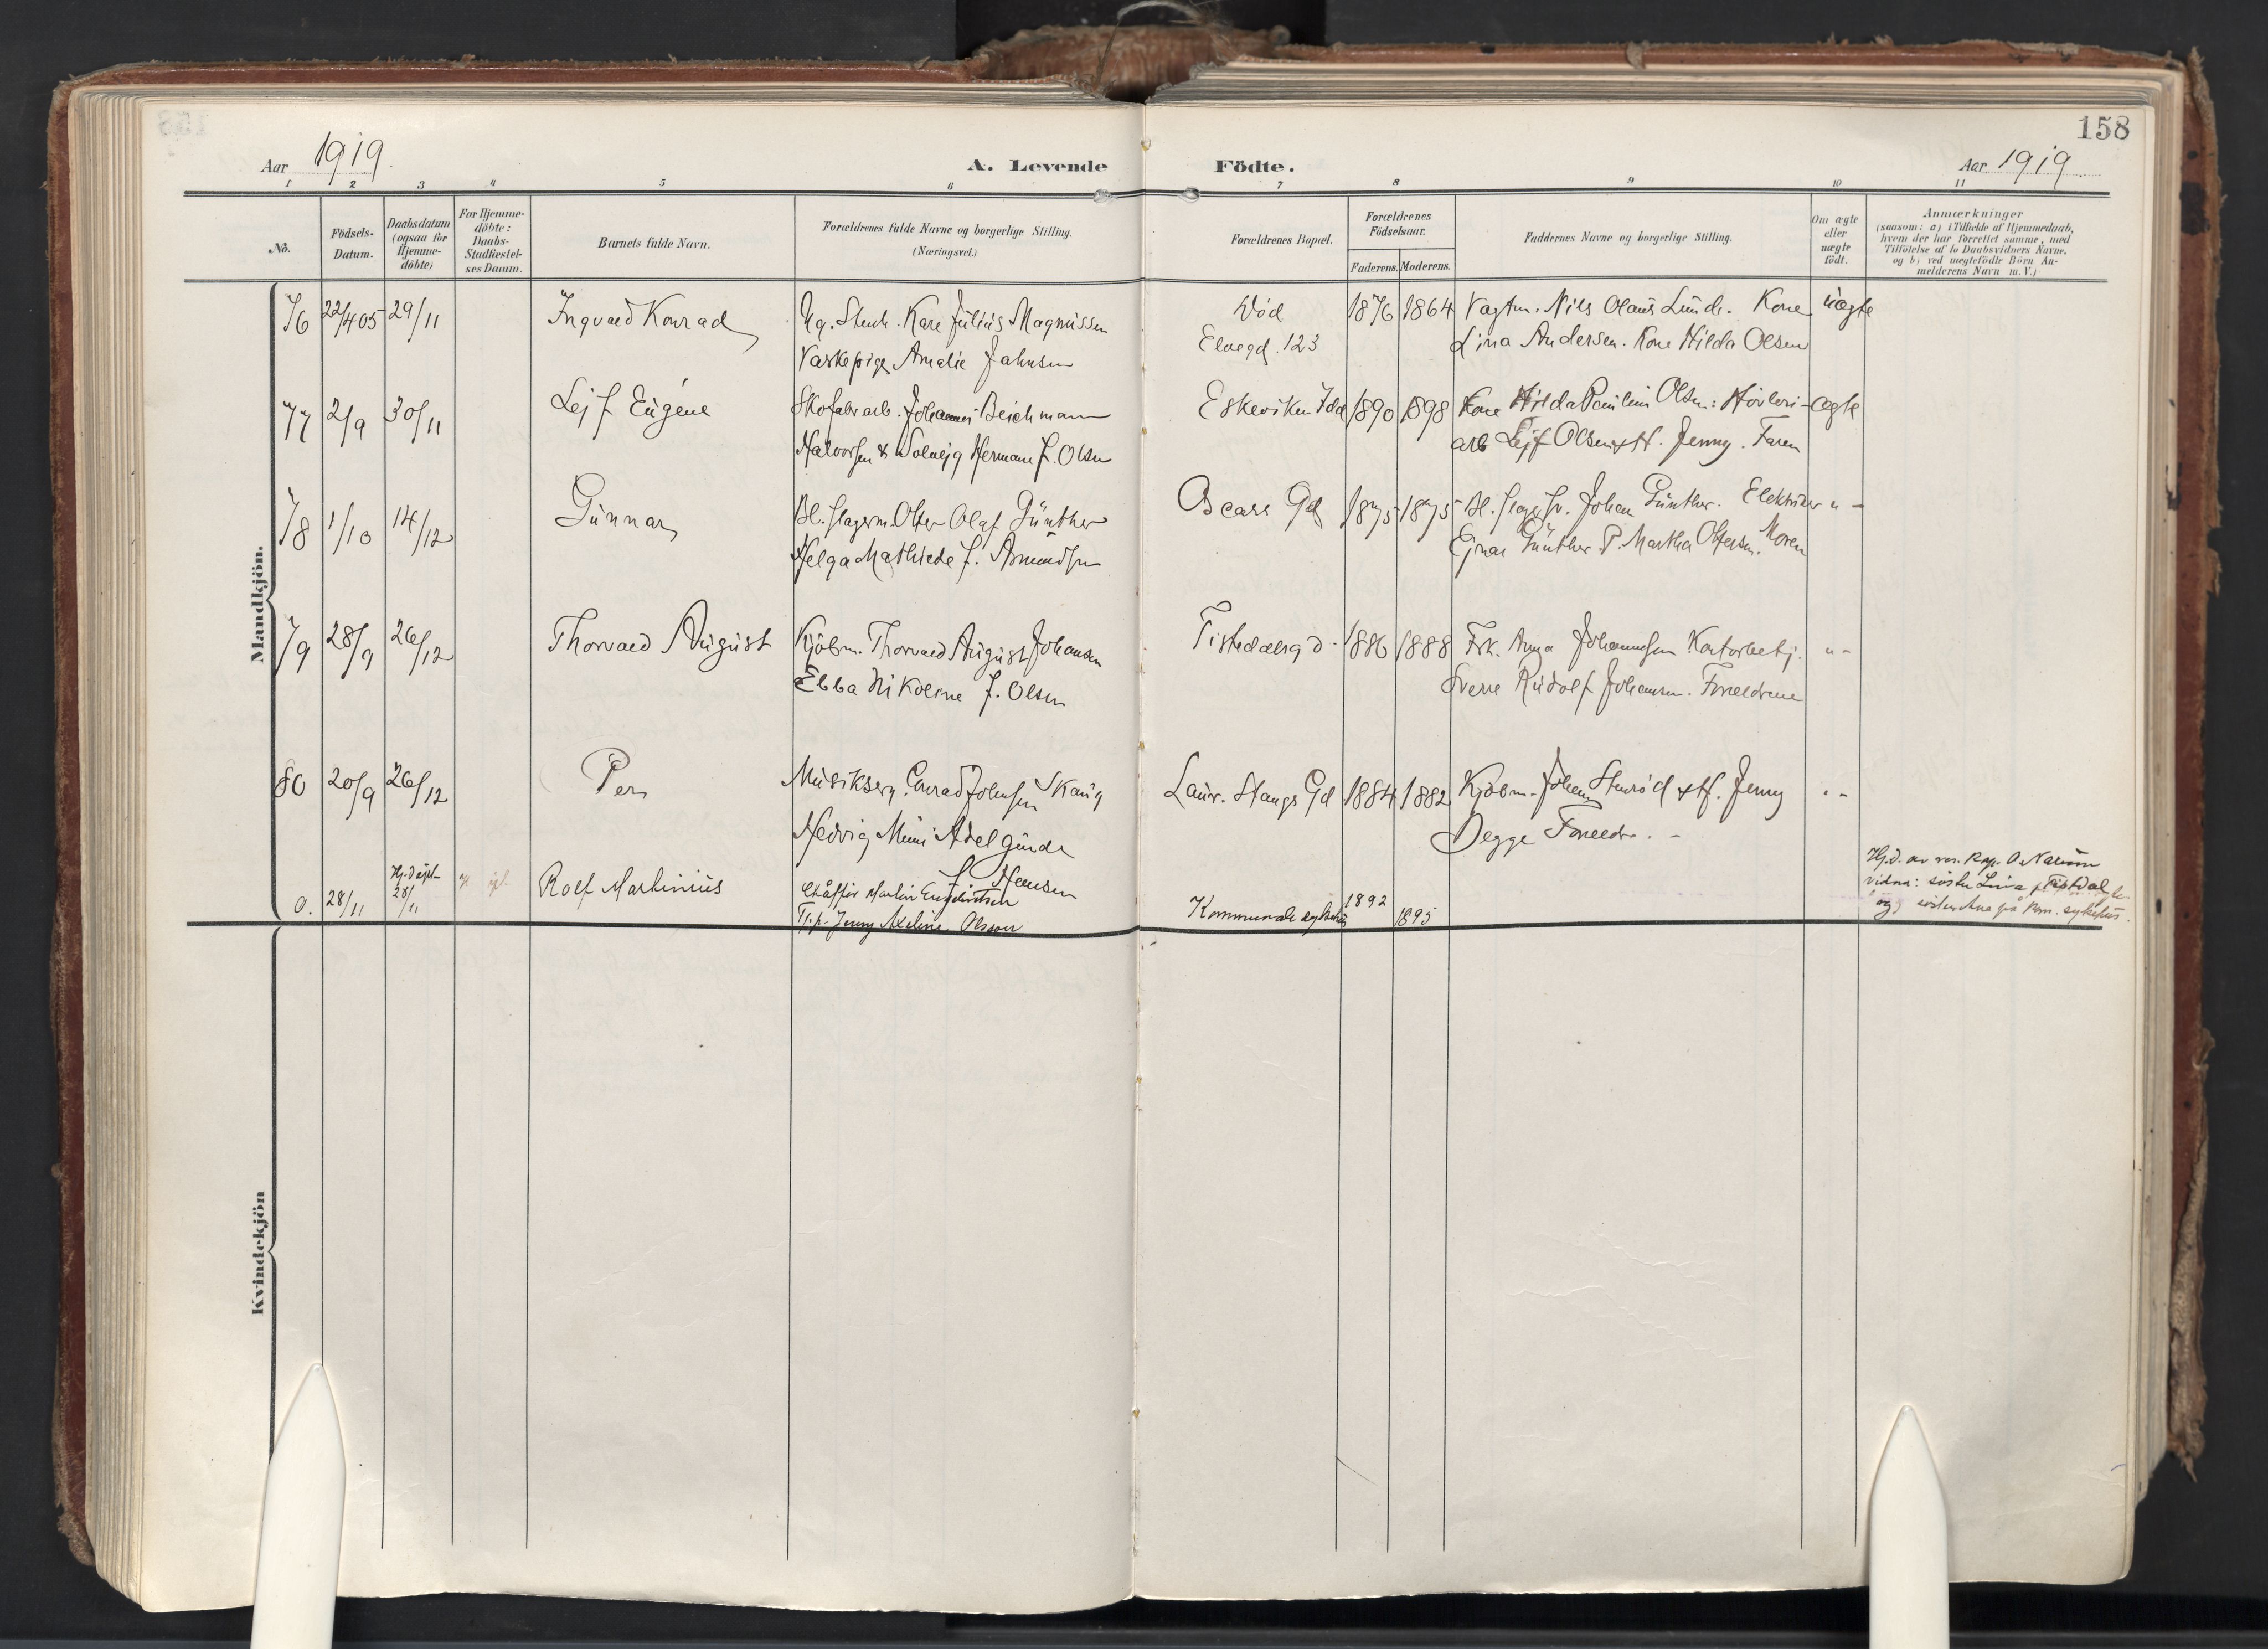 158
Aar 1919.
A. Levende Födte.
Aar 1919
1 2 3 4 5 6 7 8 9 10 11
No.
Födsels-
Datum.
Daabsdatum
(ogsaa for
Hjemme-
döbte)
For Hjemme-
döbte:
Daabs-
Stadfæstel-
ses Datum.
Barnets fulde Navn.
Forældrenes fulde Navne og borgerlige Stilling.
(Næringsvei.)
Forældrenes Bopæl.
Forældrenes
Födselsaar.
Faderens. Moderens.
Faddernes Navne og borgerlige Stilling.
Om ægte
eller
uægte
født.
Anmærkninger
(saasom: a) i Tilfælde af Hjemmedaab,
hvem der har forrettet samme, med
Tilföielse af to Daabsvidners Navne,
og b) ved uægtefödte Börn An-
melderens Navn m. V.)
Mandkjön.
76 22/4 05 29/11 Ingvald Konrad Ug. Karl Julius Magnussen Död 1876 1864 Vagtm. Nils Olaus Lunde. Kone uægte
Vaskepige Amalie Jahnsen Elvegd. 123 Lina Andersen. Kone Hilda Olsen
77 2/9 30/11 Lejf Eugéne Skofabr arb. Johannes Beichmann Eskeviken Idd 1890 1898 Kone Hilda Olsen: Hövleri- ægte
Halvorsen & Solvejg Hermane f. Olsen arb Lejf Olsen & H. Jenny. Faren
78 1/10 14/12 Gunnar Bl. slagerm. Olaf Günther Oscars Gd 1875 1875 Bl. Johan Günther. " -
Helga Mathilde f. Amundsen Ejnar Günther. P. Martha Olsen. Moren
79 28/9 26/12 Thorvald August Kjöbm. Thorvald August Johansen Tistedalsgd. 1886 1888 Frk. Anna Johannesen Kontorbetj. " -
Ebba Nikoline f. Olsen Sverre Rudolf Johansen. Forældrene
80 20/9 26/12 Per Musikserg. Conrad Johnsen Skaug Laur. Stangs Gd 1884 1882 Kjöbm. Johan Stenröd & H. Jenny " -
Hedvig Mimi Adelgunde Begge Forældr. -
f. Hansen
0. 28/11 Hj. döpt 28/11 Rolf Martinius Chåfför Martin Kommunale sykehus 1892 1895
Tj.p. Jenny Axeline Olsson
Hj.d. av res. kap. O. Narum
vidner: söster Lina Tistdal
og söster Ana på kom. sykehus.
Kvindekjön